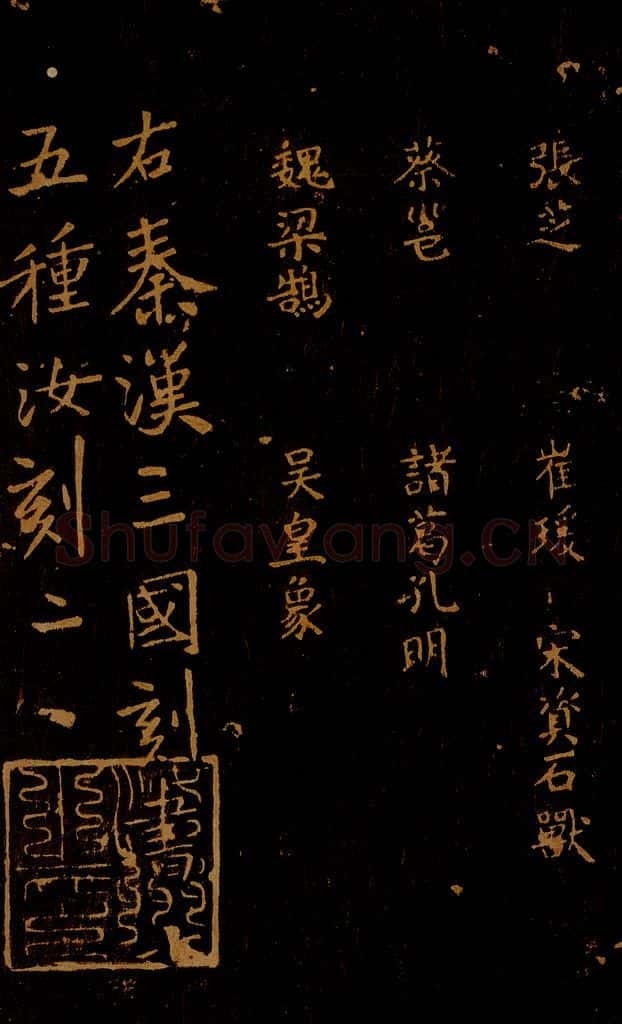 張芝 崔瑗 宋資石獸
蔡邕 諸葛孔明
魏梁鵠 吴皇象
右秦漢三國刻
五種汝刻二
Shufawang.cn